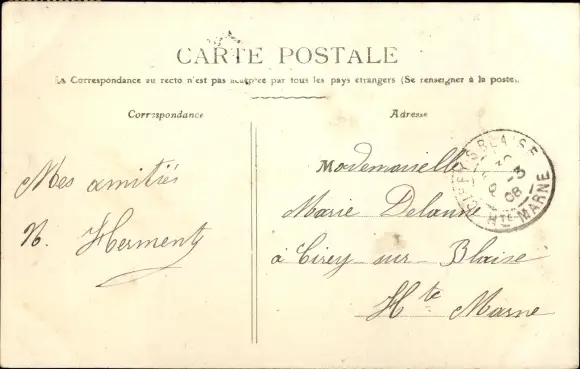 CARTE POSTALE
La Correspondance au recto n'est pas acceptée par tous les pays étrangers (Se renseigner à la poste).
Correspondance
Adresse
Mes amitiés
N. Herment
Mademoiselle
Marie Delanne
à Cirey-sur-Blaise
Hte Marne
CIREY-S-BLAISE
-3
08
HTE MARNE